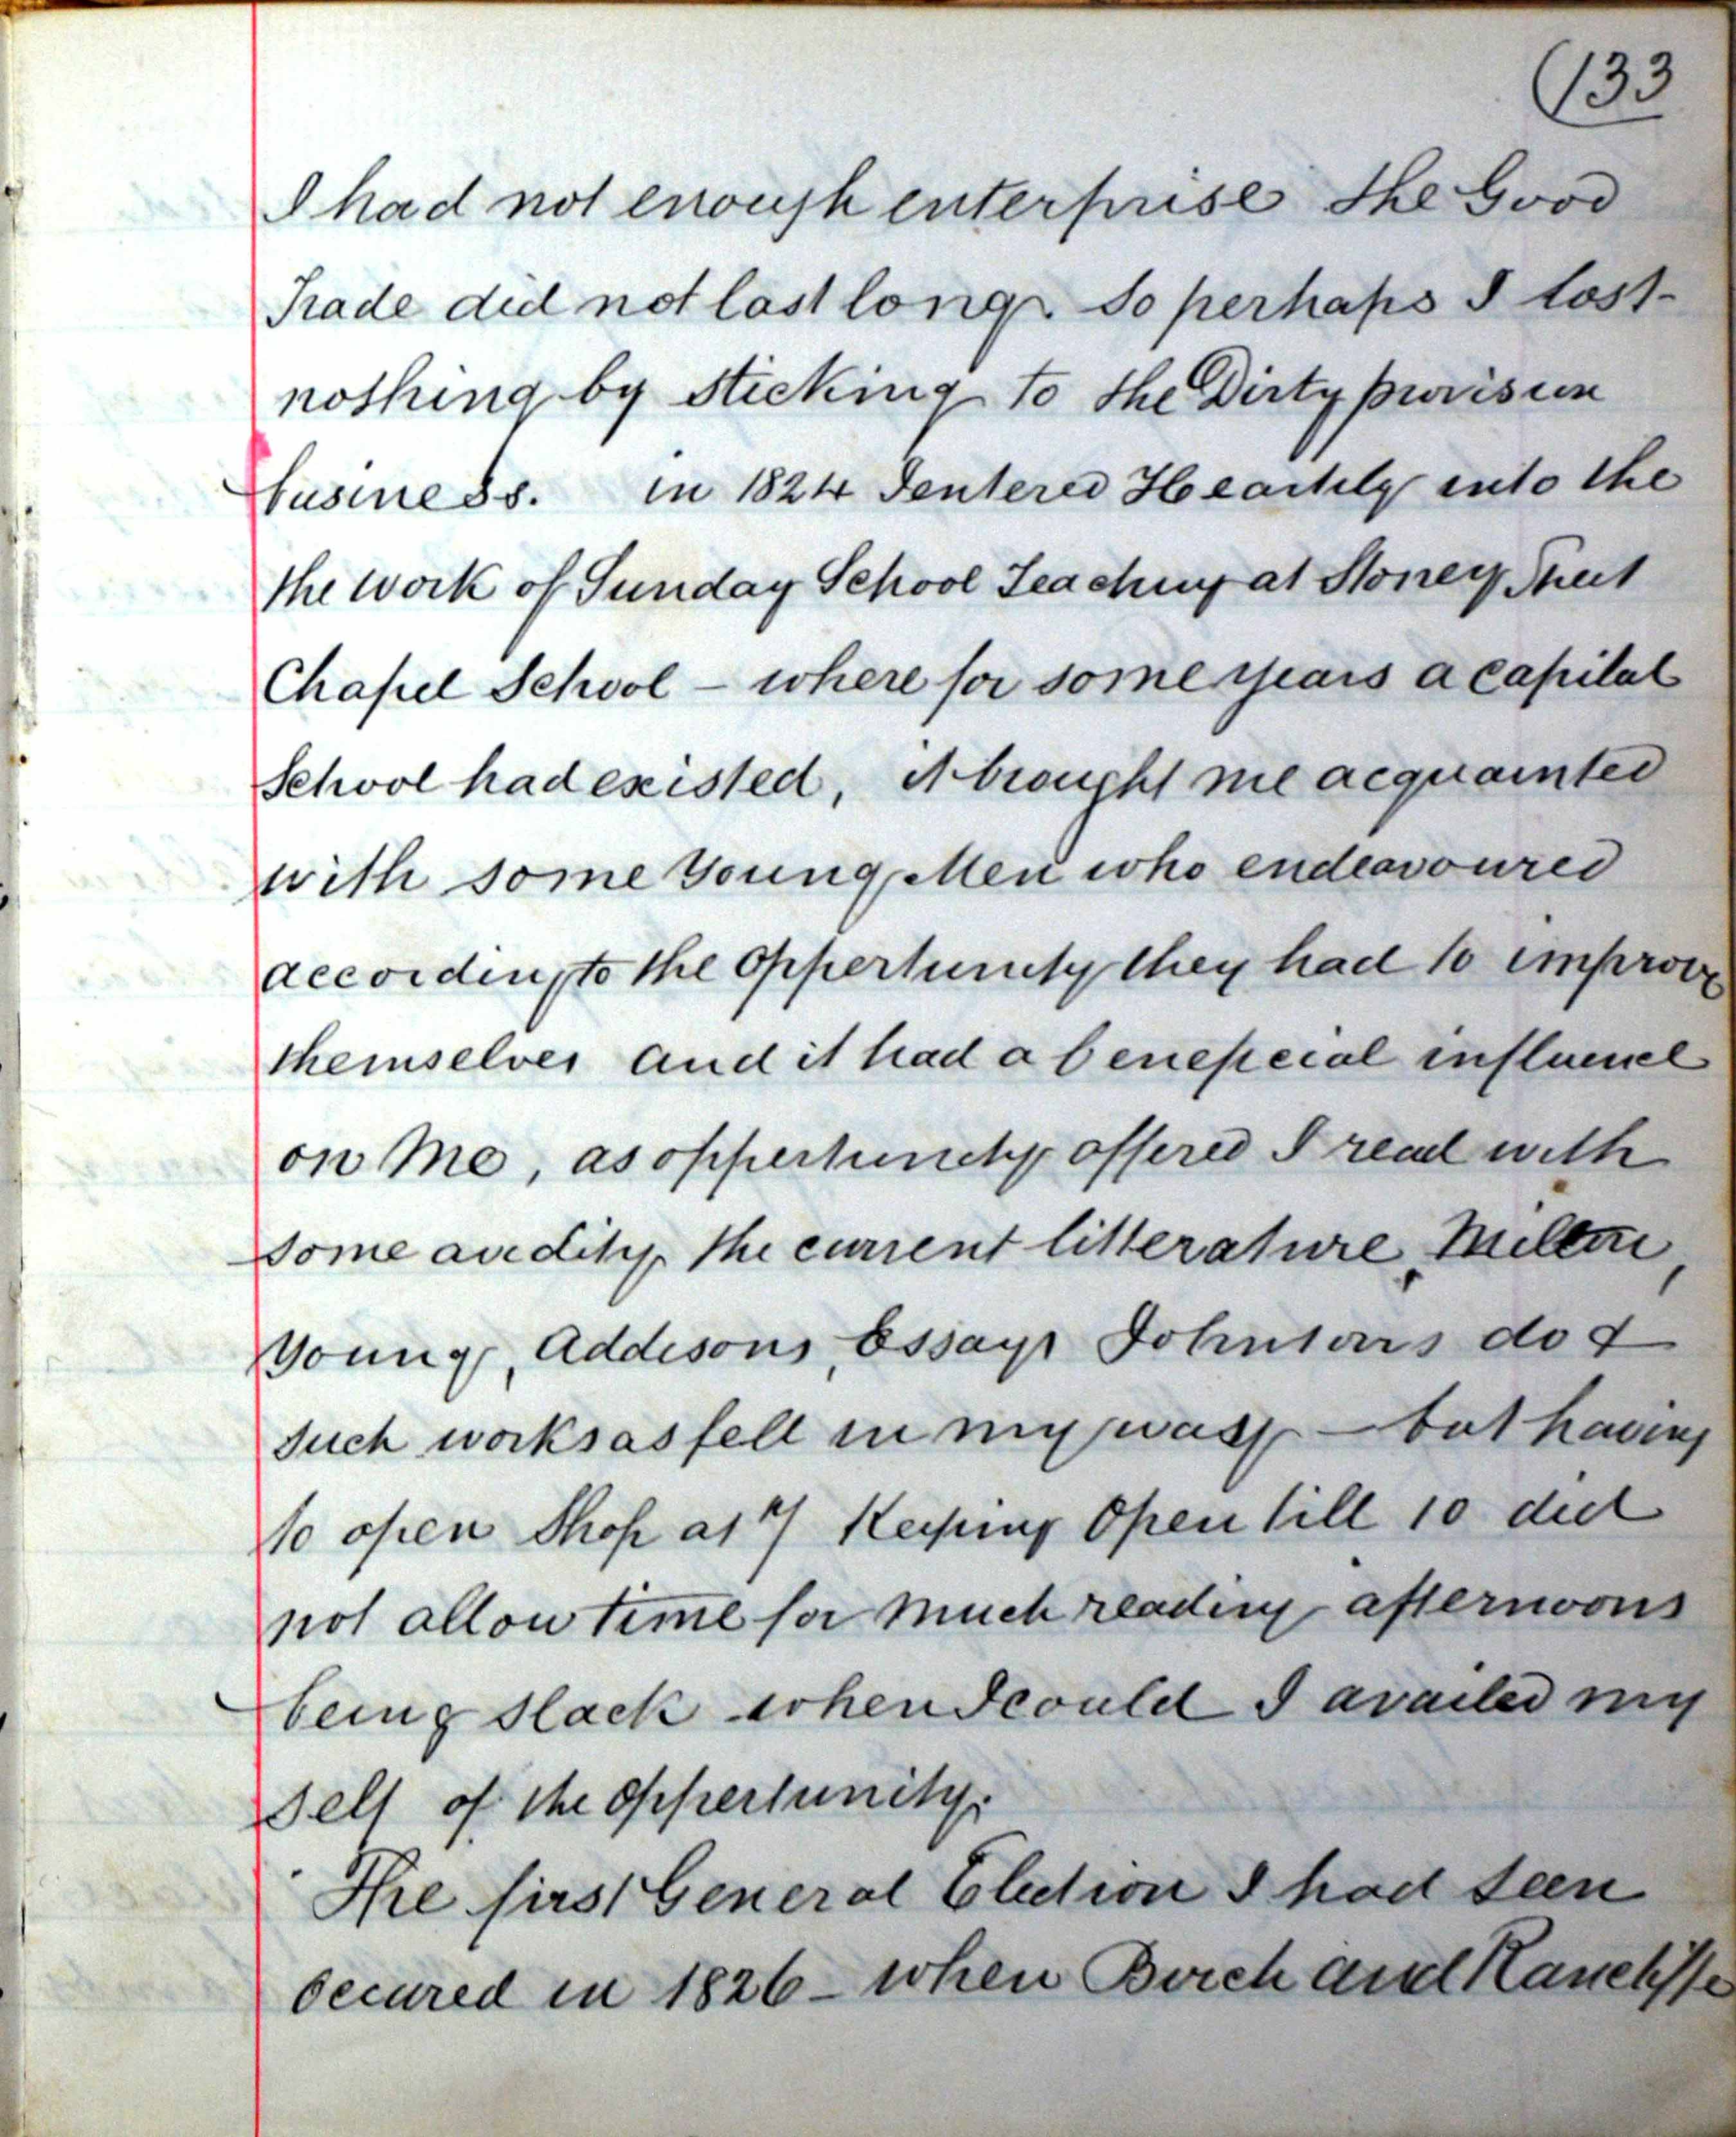 (133
I had not enough enterprise the Good
Trade did not last long. So perhaps I lost
nothing by sticking to the Dirty provision
business. in 1824 I entered Heartily into the
the work of Sunday School Teaching at Stoney Street
Chapel School - where for some years a capital
School had existed, it brought me acquainted
with some Young Men who endeavoured
according to the oppertunity they had to improve
themselves and it had a beneficial influence
on Me, as oppertunity offered I read with
some avidity the current litterature, Milton,
Young, Addisons, Essays Johnsons do &
such works as fell in my way - but having
to open Shop at 7 Keeping Open till 10 did
not allow time for much reading afternoons
being slack when I could I availed my
self of the oppertunity.
The first General Election I had seen
occured in 1826 - when Birch and Rancliffe